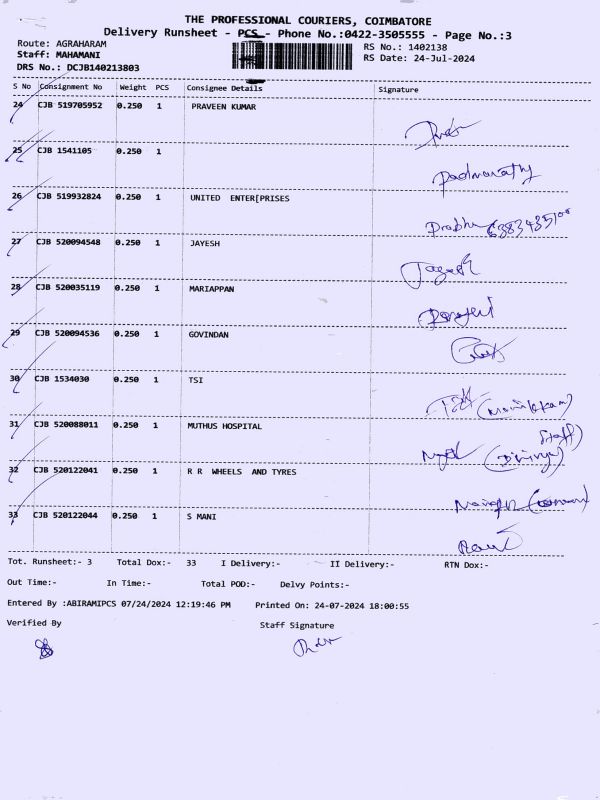 THE PROFESSIONAL COURIERS, COIMBATORE
Delivery Runsheet - PCS - Phone No.:0422-3505555 - Page No.:3
Route: AGRAHARAM RS No.: 1402138
Staff: MAHAMANI RS Date: 24-Jul-2024
DRS No.: DCJB140213803
S No Consignment No Weight PCS Consignee Details Signature
24 CJB 519705952 0.250 1 PRAVEEN KUMAR
25 CJB 1541105 0.250 1
Padmavathy
26 CJB 519932824 0.250 1 UNITED ENTER[PRISES
Prabhu
27 CJB 520094548 0.250 1 JAYESH
Jayesh
28 CJB 520035119 0.250 1 MARIAPPAN
29 CJB 520094536 0.250 1 GOVINDAN
30 CJB 1534030 0.250 1 TSI
(Manikkam)
31 CJB 520088011 0.250 1 MUTHUS HOSPITAL
Staff)
(Divinya)
32 CJB 520122041 0.250 1 R R WHEELS AND TYRES
33 CJB 520122044 0.250 1 S MANI
Tot. Runsheet:- 3 Total Dox:- 33 I Delivery:- II Delivery:- RTN Dox:-
Out Time:- In Time:- Total POD:- Delvy Points:-
Entered By :ABIRAMIPCS 07/24/2024 12:19:46 PM Printed On: 24-07-2024 18:00:55
Verified By Staff Signature